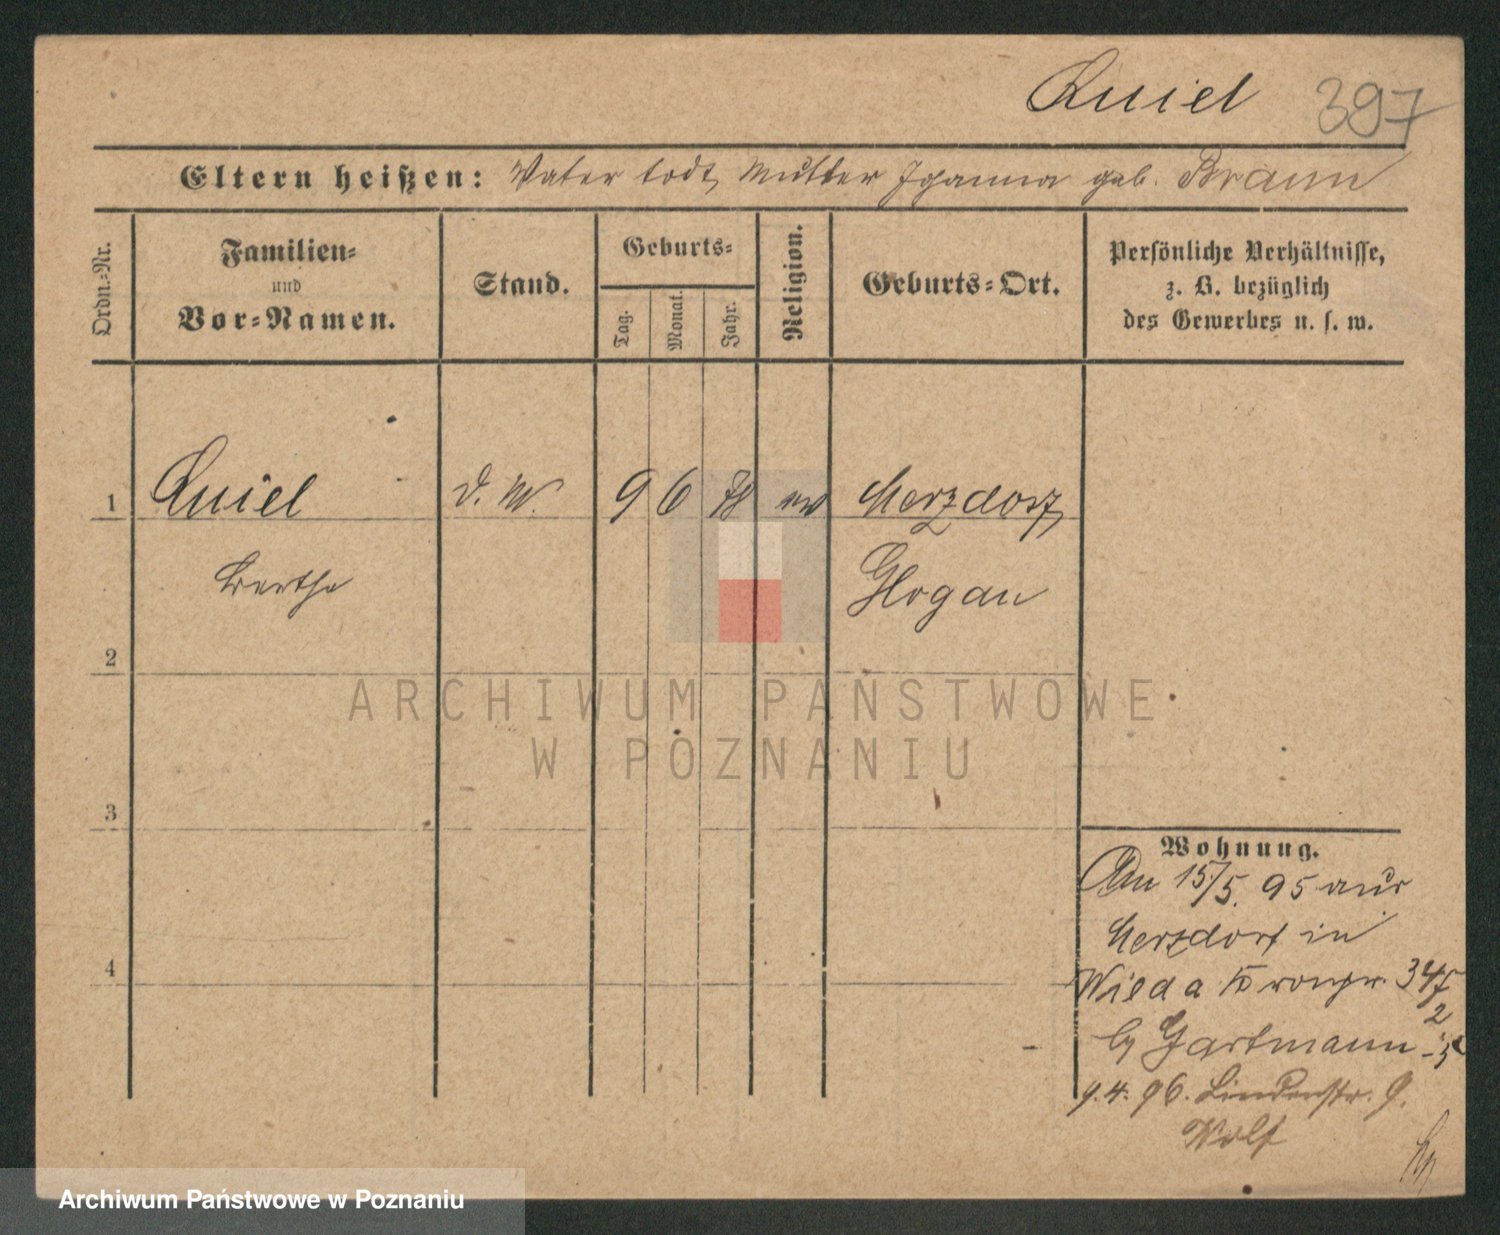 Quiel 397
Eltern heißen: Vater todt, Mutter Johanna geb. Braun
Ordn.-Nr.
Familien-
und
Vor-Namen.
Stand.
Geburts-
Tag.
Monat.
Jahr.
Religion.
Geburts-Ort.
Persönliche Verhältnisse,
z. B. bezüglich
des Gewerbes u. s. w.
1 Quiel d. M. 9 6 78 ev Merzdorf,
Bertha Glogau
2
3
4
Wohnung.
Am 15/5. 95 aus
Merzdorf in
Wilda Kronpr. 34
b/ Hartmann
9.4.96. Lindenstr. 9.
Wolf
ARCHIWUM PAŃSTWOWE
W POZNANIU
Archiwum Państwowe w Poznaniu